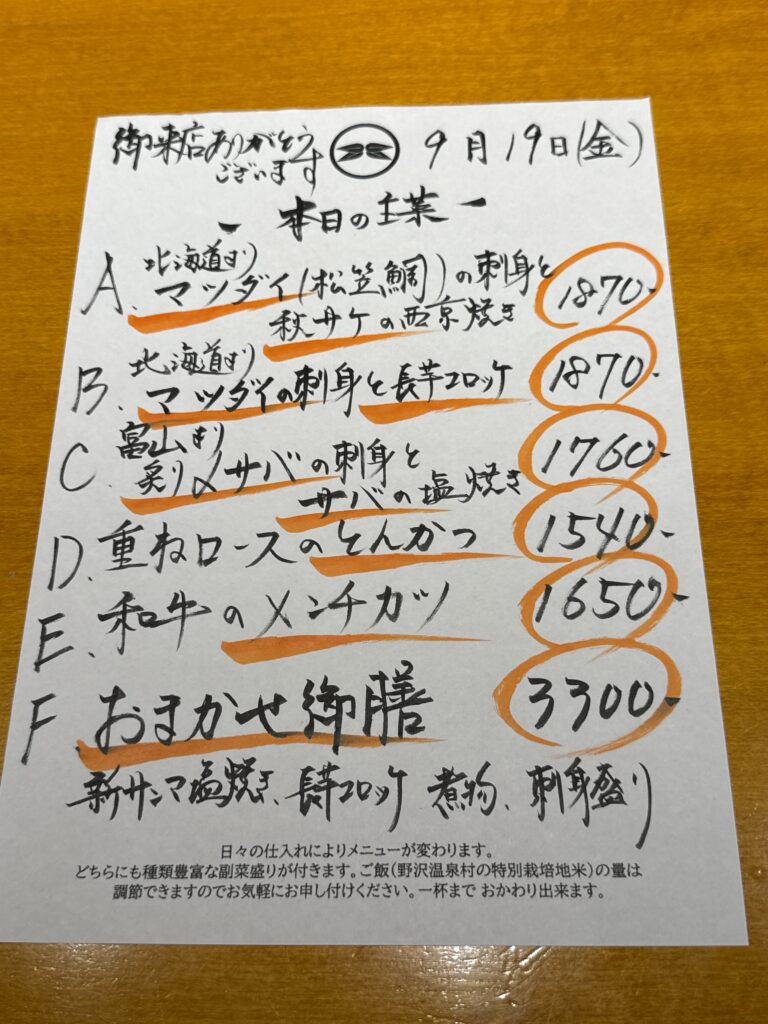 御来店ありがとう
ございます
9月19日(金)
- 本日の主菜 -
A. 北海道より
マツダイ(松笠鯛)の刺身と
秋サケの西京焼き 1870-
B. 北海道より
マツダイの刺身と長芋コロッケ 1870-
C. 富山より
炙り〆サバの刺身と
サバの塩焼き 1760-
D. 重ねロースのとんかつ 1540-
E. 和牛のメンチカツ 1650-
F. おまかせ御膳 3300-
新サンマ塩焼き、長芋コロッケ 煮物、刺身盛り
日々の仕入れによりメニューが変わります。
どちらにも種類豊富な副菜盛りが付きます。ご飯(野沢温泉村の特別栽培地米)の量は
調節できますのでお気軽にお申し付けください。一杯まで おかわり出来ます。